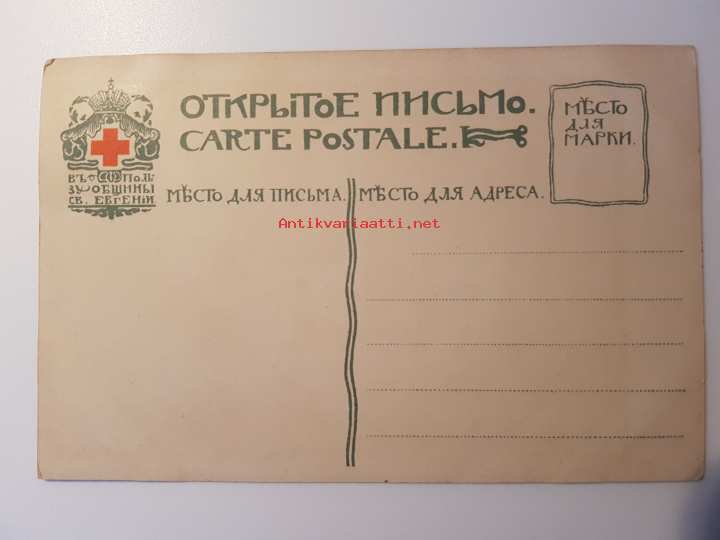 ОТКРЫТОЕ ПИСЬМО.
CARTE POSTALE.
МѢСТО
ДЛЯ
МАРКИ.
ВЪ ПОЛЬ
ЗУ ОБЩИНЫ
СВ. ЕВГЕНІИ
МѢСТО ДЛЯ ПИСЬМА.
МѢСТО ДЛЯ АДРЕСА.
Antikvariaatti.net